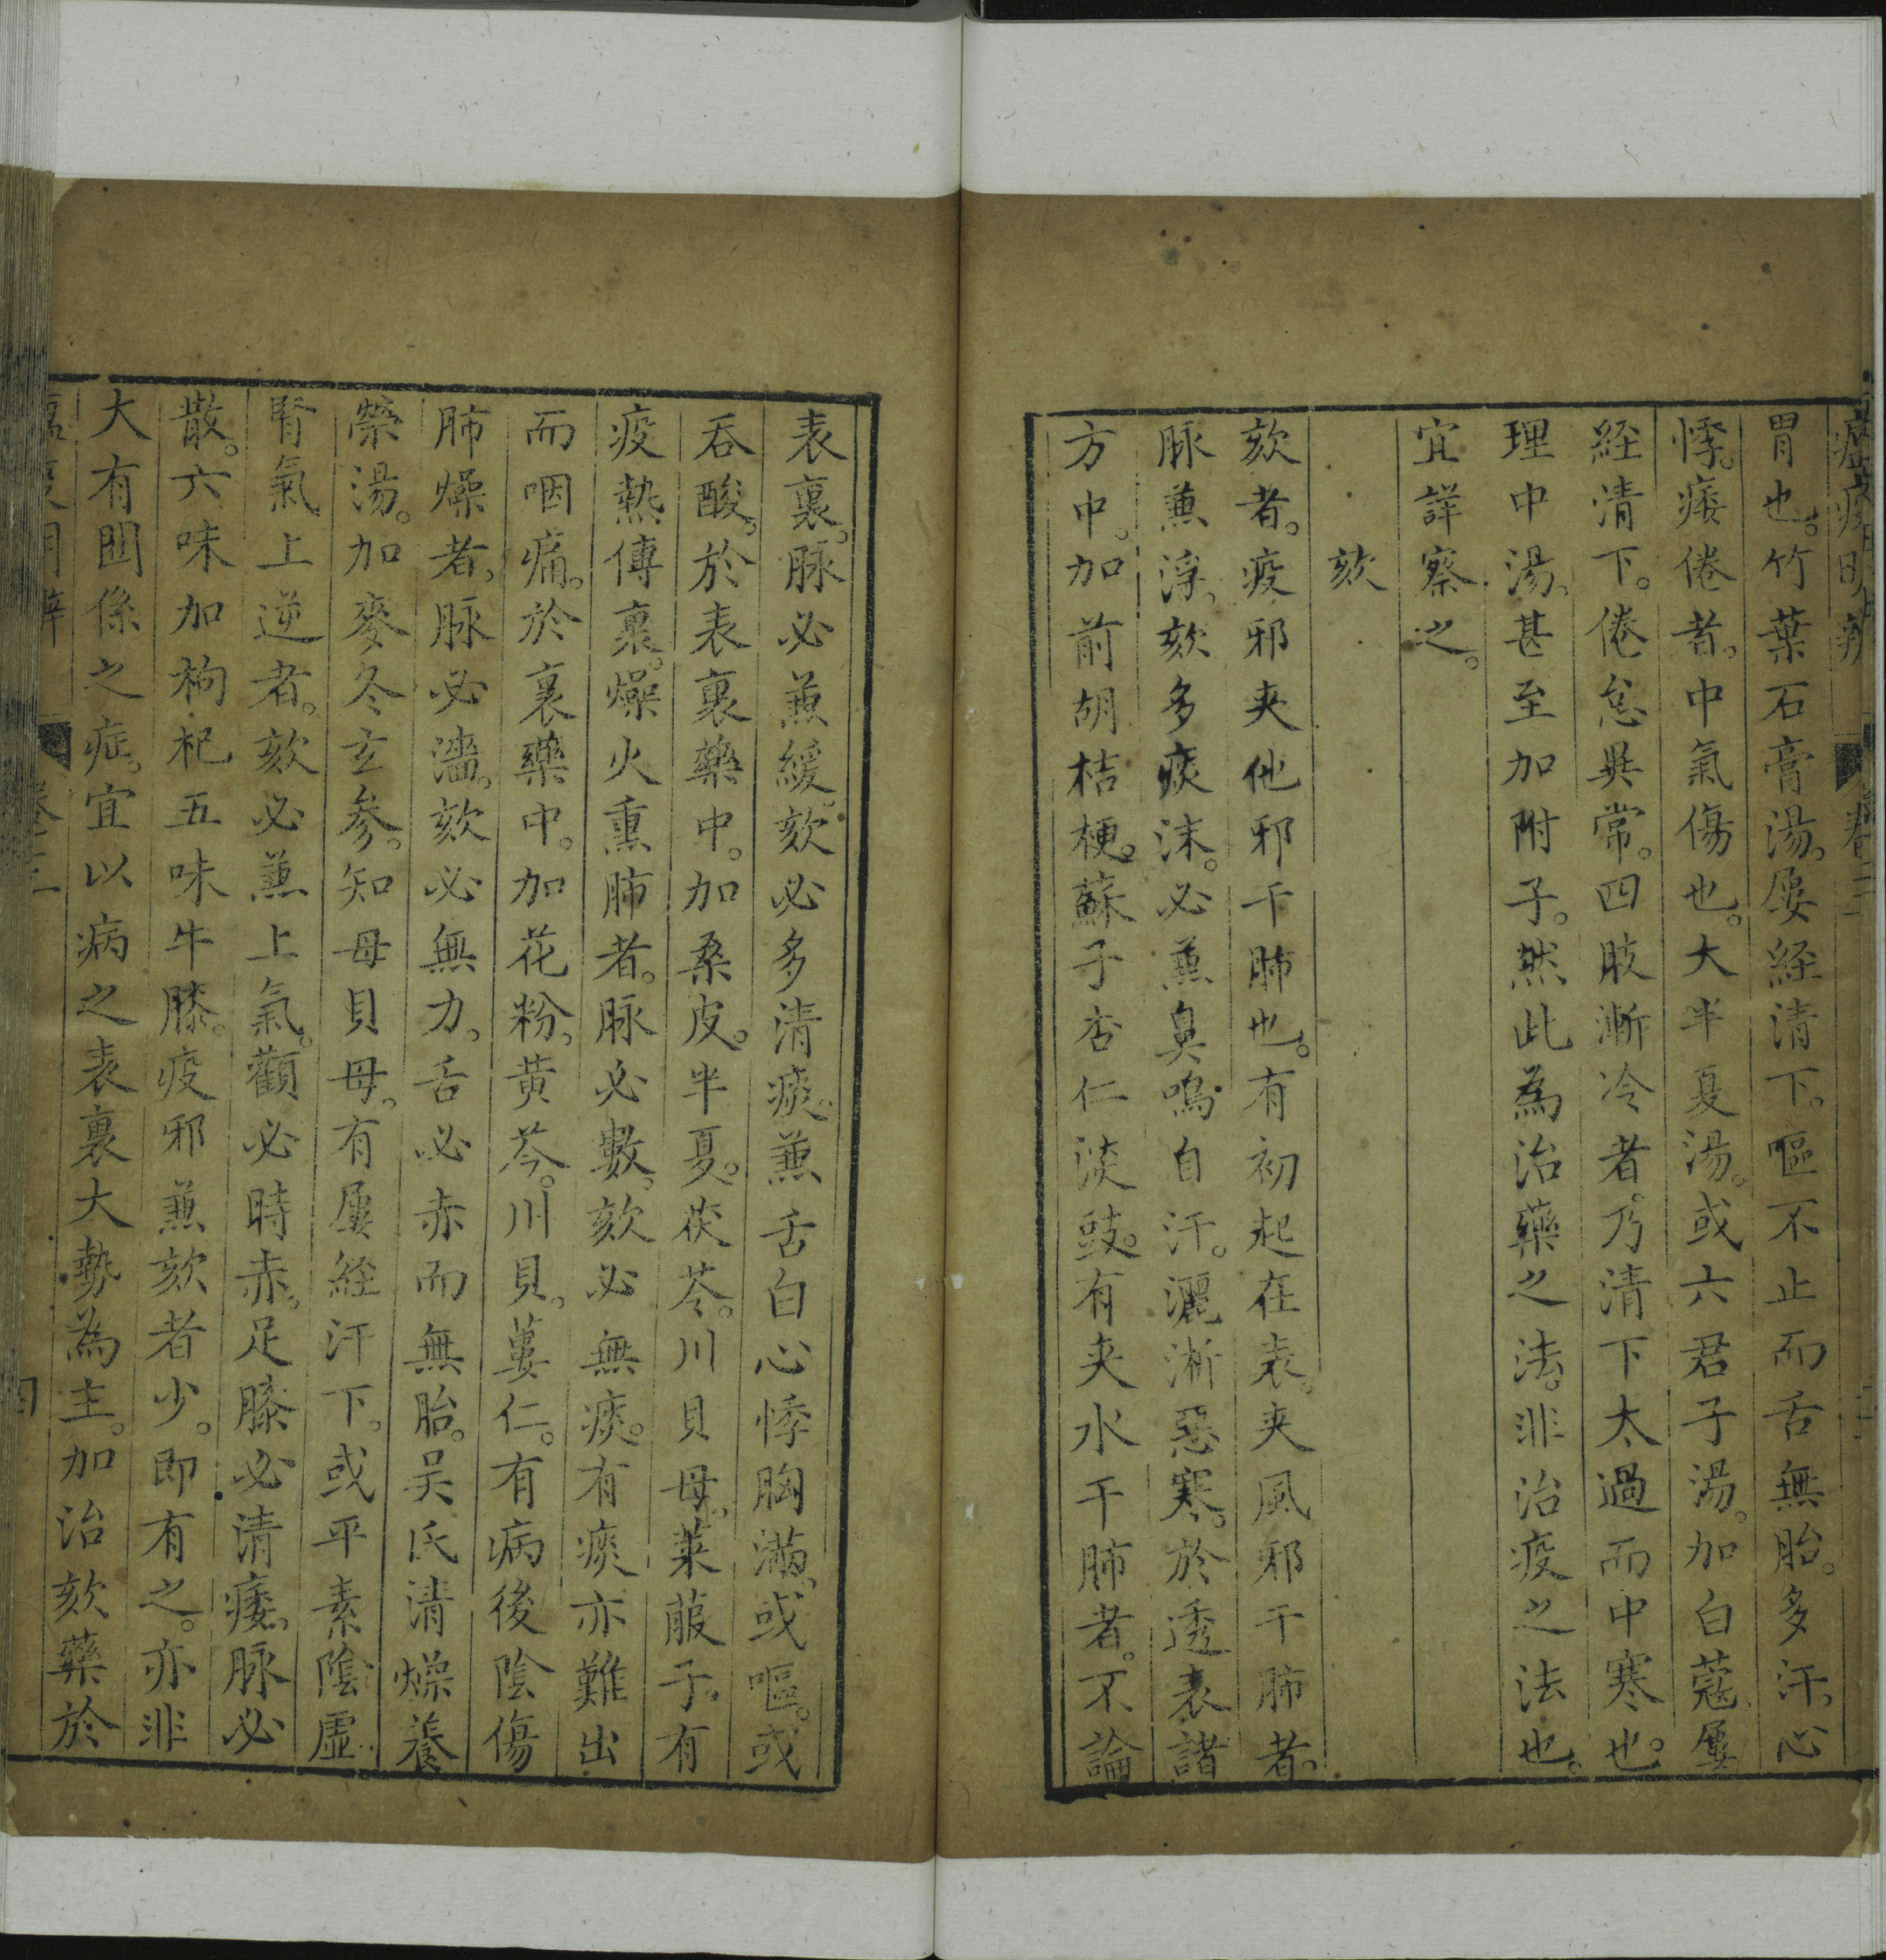 胃也。竹葉石膏湯。屢経清下。嘔不止而舌無胎。多汗、心
悸。痿倦者。中氣傷也。大半夏湯。或六君子湯。加白蔻、屢
経清下。倦怠異常。四肢漸冷者。乃清下太過而中寒也。
理中湯、甚至加附子。然此為治藥之法。非治疫之法也。
宜詳察之。
欬
欬者。疫邪夾他邪干肺也。有初起在表。夾風邪干肺者。
脉兼浮、欬多痰沫。必兼鼻鳴自汗。灑淅惡寒。於透表諸
方中。加前胡桔梗。蘇子杏仁淡豉。有夾水干肺者。不論
表裏。脉必兼緩。欬必多清痰。兼舌白心悸胸滿。或嘔。或
吞酸。於表裏藥中。加桑皮。半夏。茯苓。川貝母。萊菔子。有
疫熱傳裏。燥火熏肺者。脉必數。欬必無痰。有痰亦難出
而咽痛。於裏藥中。加花粉。黄芩。川貝。蔞仁。有病後陰傷
肺燥者。脉必濇。欬必無力。舌必赤而無胎。吴氏清燥養
榮湯。加麥冬玄参。知母貝母。有屢経汗下。或平素陰虛
腎氣上逆者。欬必兼上氣。顴必時赤。足膝必清痿。脉必
散。六味加枸杞五味牛膝。疫邪兼欬者少。即有之。亦非
大有関係之症。宜以病之表裏大勢為主。加治欬藥於